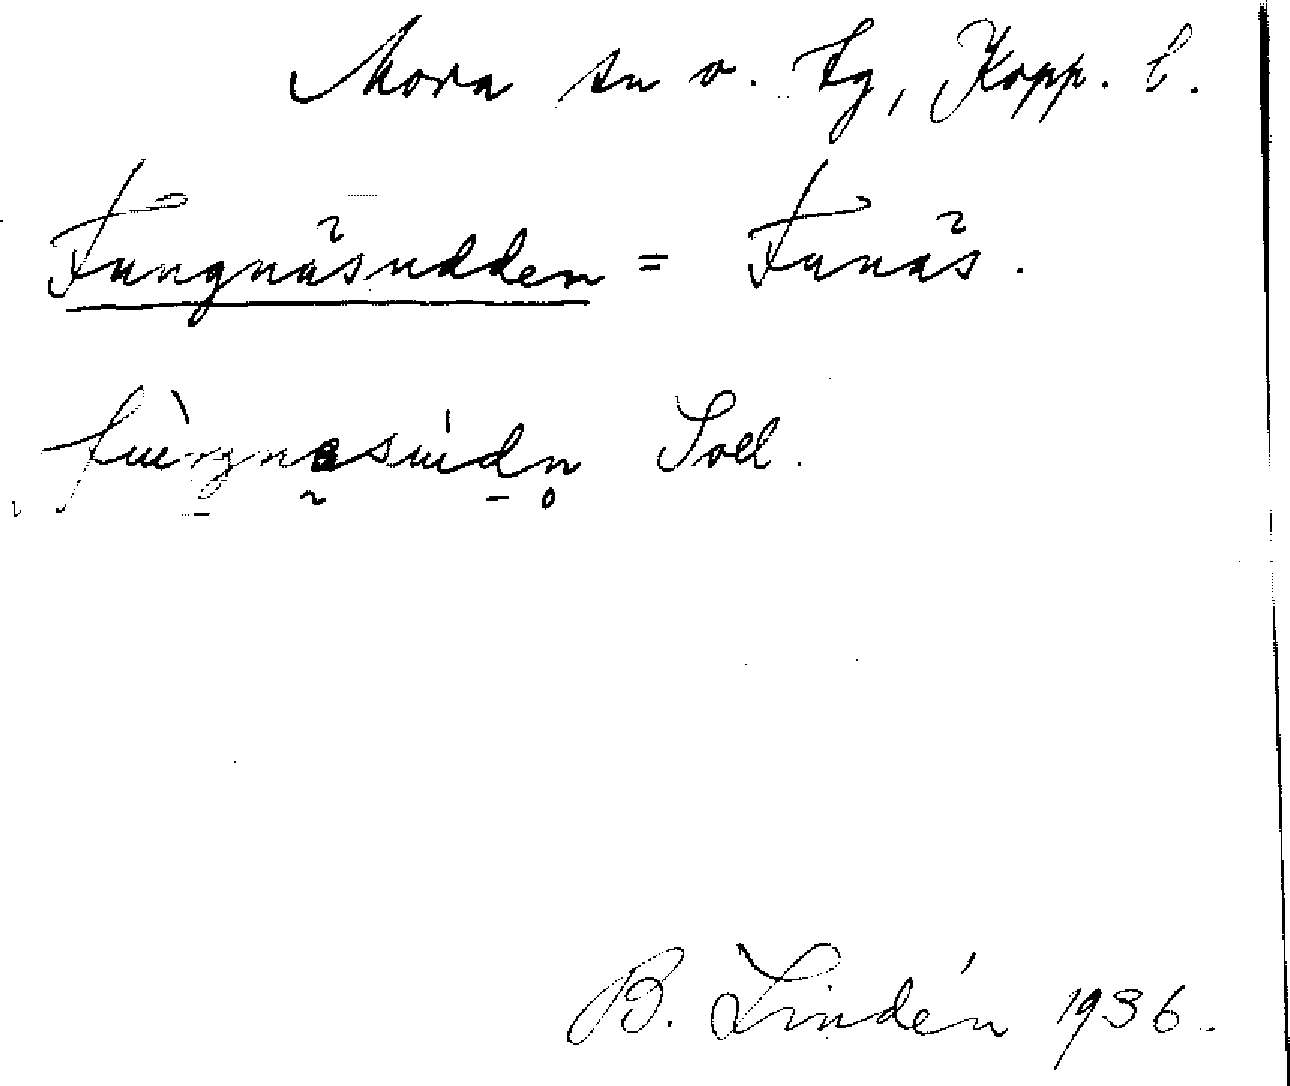 Mora sn o. tg, Kopp. l.
Fungnäsudden = Funäs.
Soll.
B. Lindén 1936.